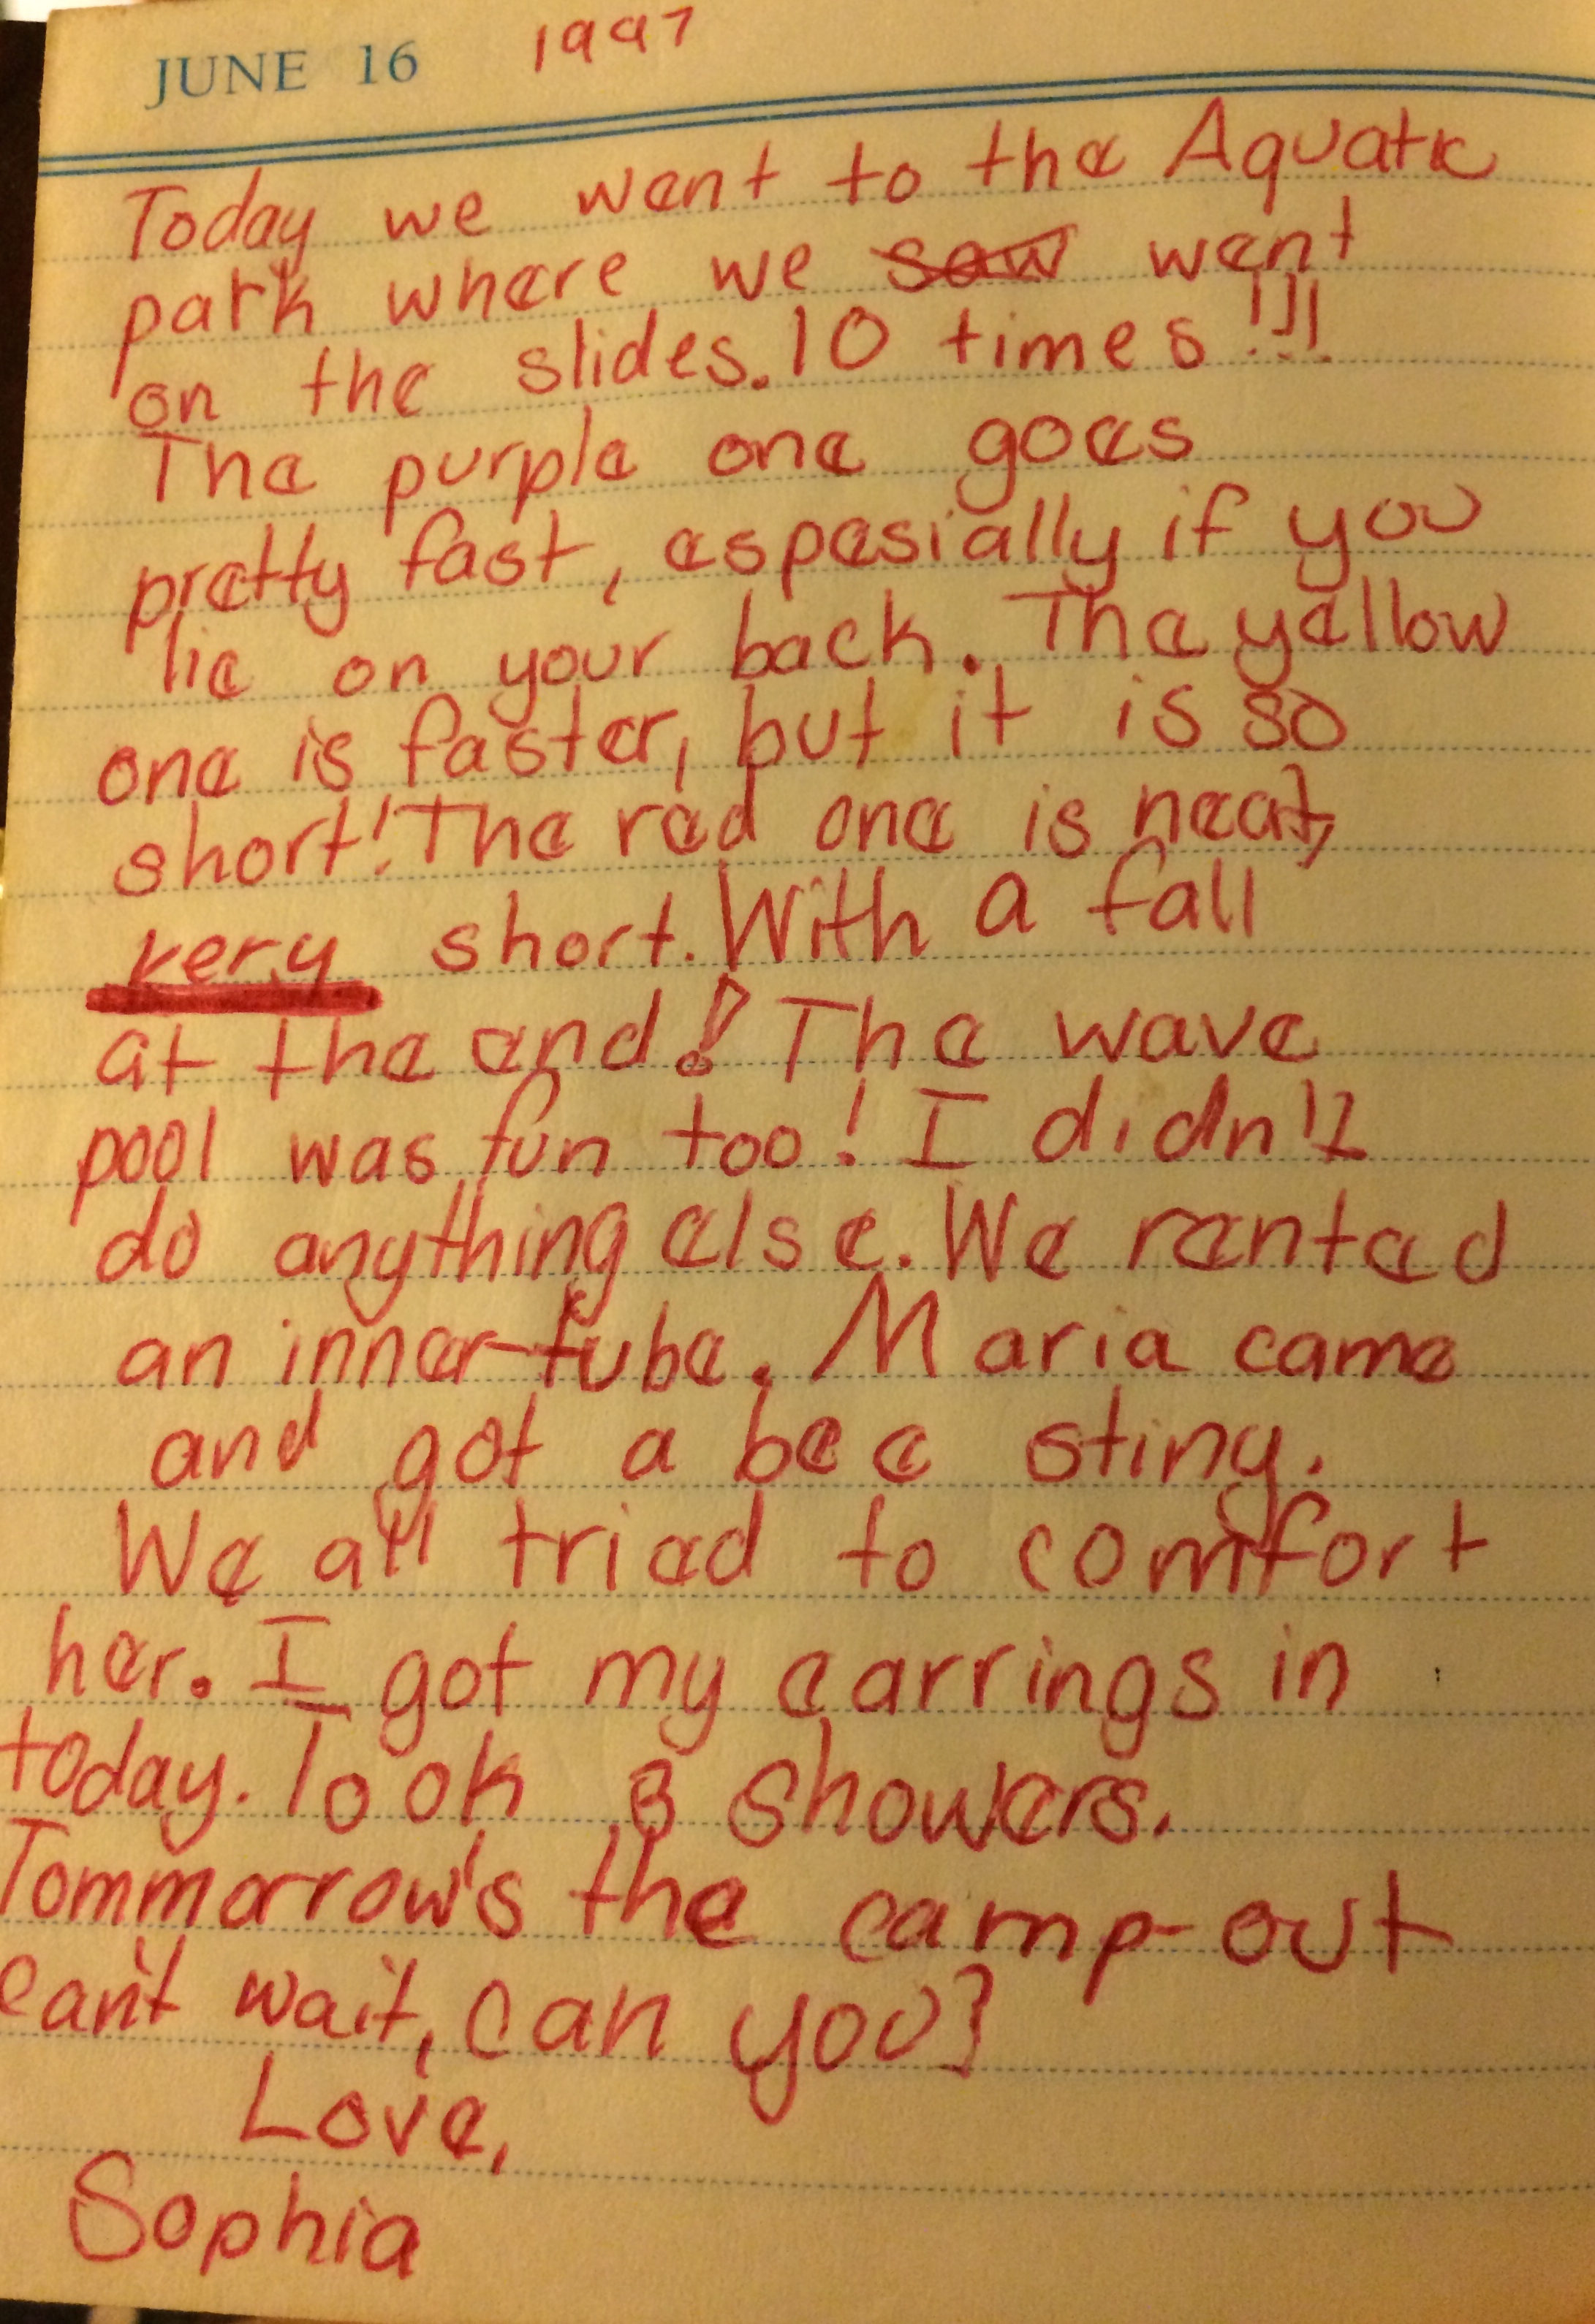 JUNE 16 1997
Today we went to the Aquatic
park where we saw went
on the slides. 10 times!!!
The purple one goes
pretty fast, espesially if you
lie on your back. The yellow
one is faster, but it is so
short! The red one is neat,
very short. With a fall
at the end! The wave
pool was fun too! I didn't
do anything else. We rented
an inner-tube. Maria came
and got a bee sting.
We all tried to comfort
her. I got my earrings in
today. Took 3 showers.
Tommarrow's the camp-out
can't wait, can you?
Love,
Sophia